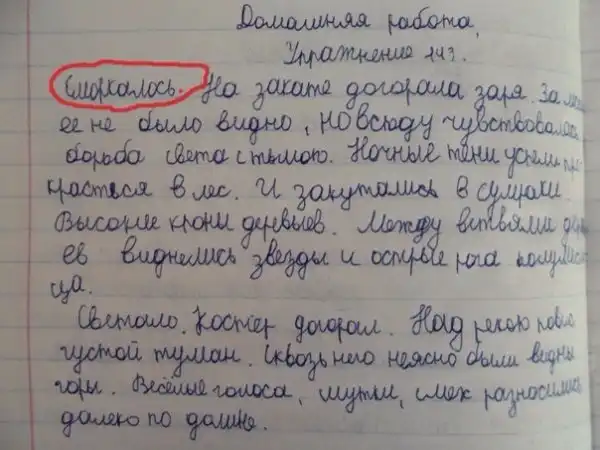 Домашняя работа,
Упражнение 443.
Сморкалось. На закате догорала заря. За
ее не было видно, но всюду чувствовалась
борьба света с тьмою. Ночные тени успели про-
красться в лес. И закутались в сумраки.
Высокие кроны деревьев. Между ветвями дерев-
ев виднелись звезды и острые рога полумеся-
ца.
Светало. Костёр догорал. Над рекою повис
густой туман. Сквозь него неясно были видны
горы. Весёлые голоса, шутки, смех разносились
далеко по долине.